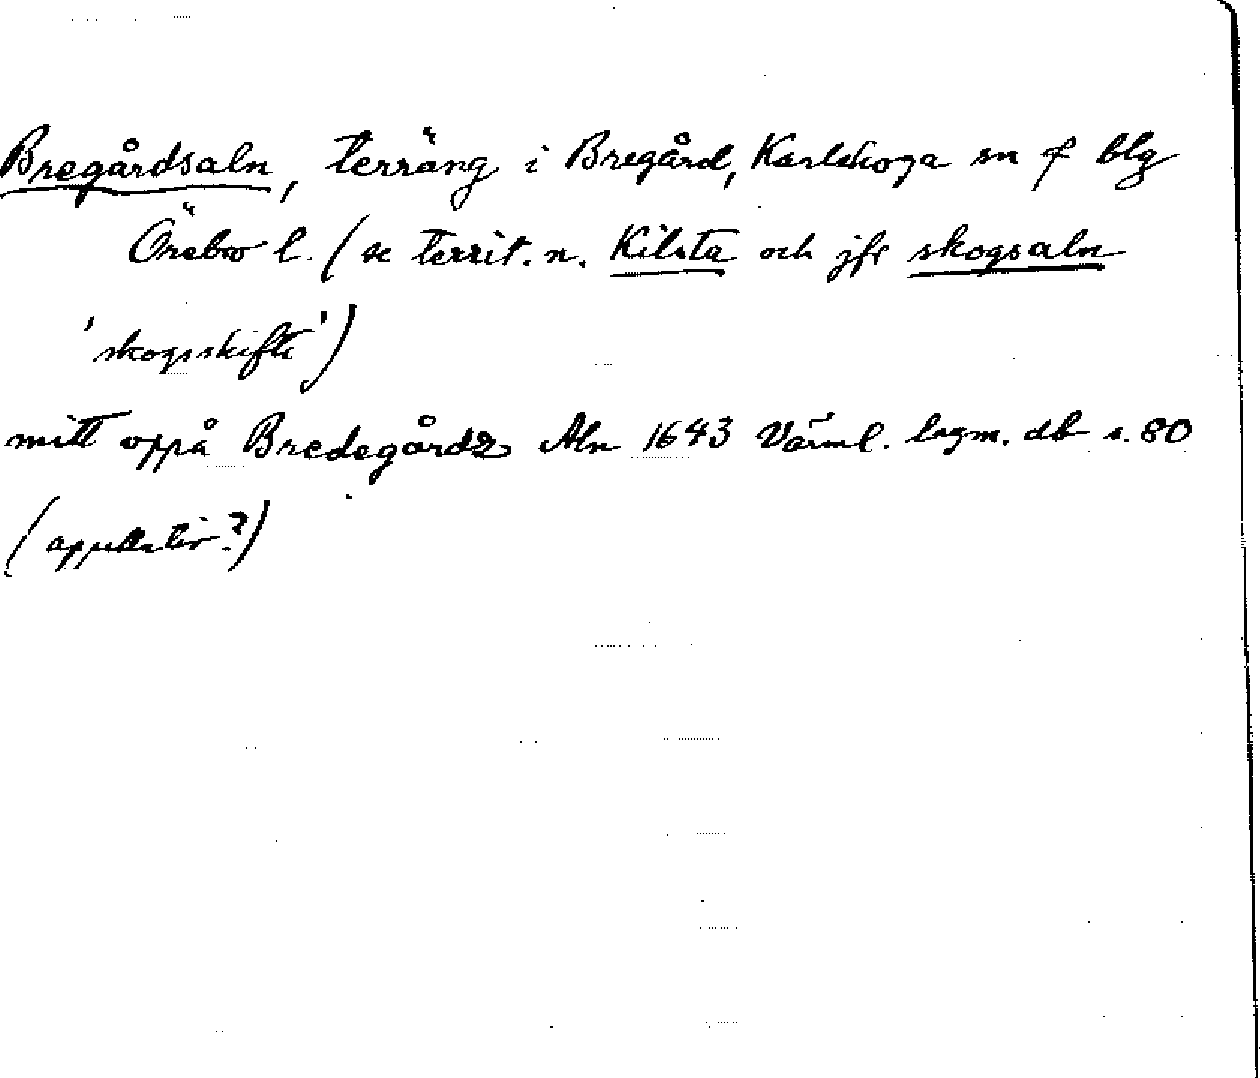 Bregårdsaln, terräng i Bregård, Karlskoga sn o blg
Örebro l. (se territ. n. Kilsta och jfr skogsaln
'skogsskifte')
mitt oppå Bredegårdz Aln 1643 Värml. lagm. db s. 80
(appellativ?)